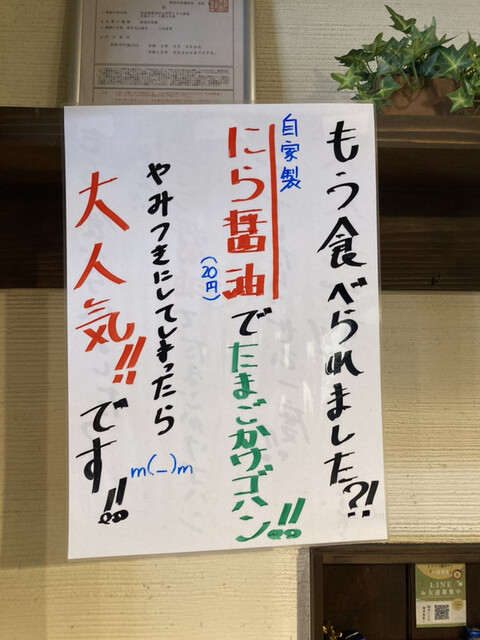 もう食べられましたか?!
自家製
にら醤油でたまごかけゴハン!!
(20円)
やみつきにしてしまったら
m(_)m
大人気!!です!!
LINE
お友達募集中